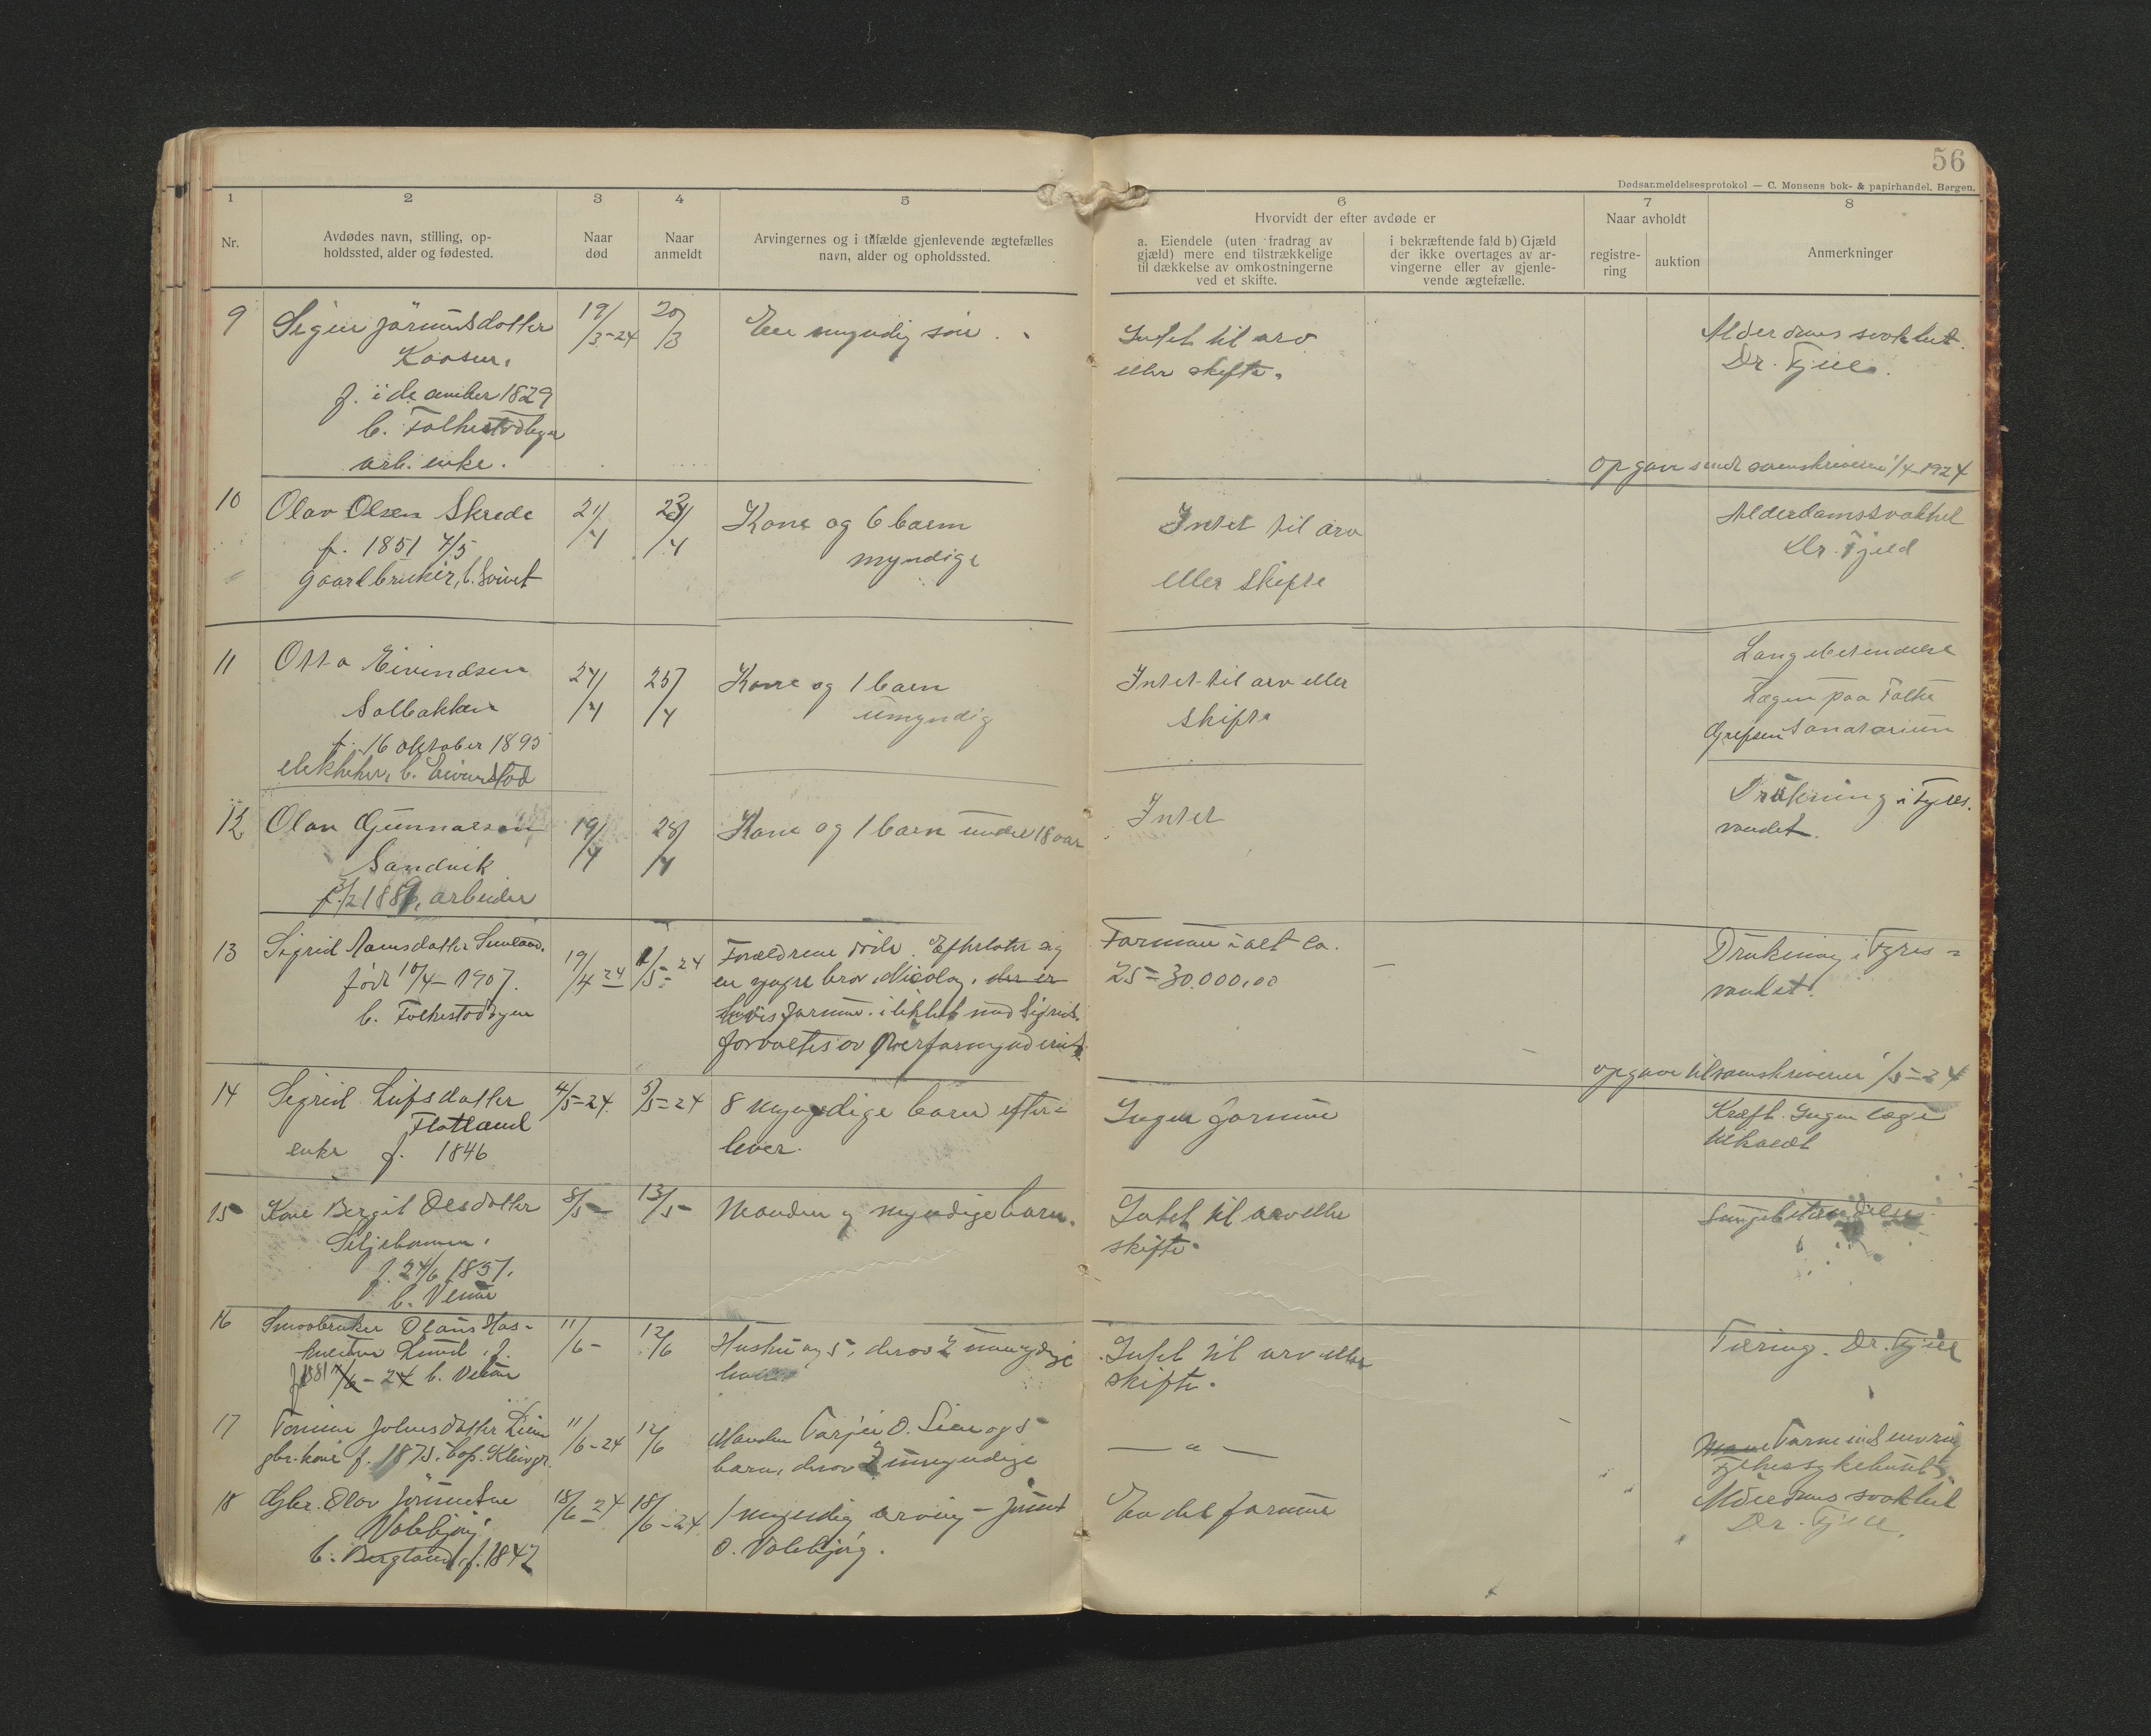 56
Dødsanmeldelsesprotokol — C. Monsens bok- & papirhandel, Bergen.
1
2
3
4
5
6
7
8
Nr.
Avdødes navn, stilling, op-
holdssted, alder og fødested.
Naar
død
Naar
anmeldt
Arvingernes og i tilfælde gjenlevende ægtefælles
navn, alder og opholdssted.
Hvorvidt der efter avdøde er
a. Eiendele (uten fradrag av
gjæld) mere end tilstrækkelige
til dækkelse av omkostningerne
ved et skifte.
i bekræftende fald b) Gjæld
der ikke overtages av ar-
vingerne eller av gjenle-
vende ægtefælle.
Naar avholdt
registre-
ring
auktion
Anmerkninger
9
Jørundsdatter
f. i december 1829
b.
arb. enke.
19/3-24
20/3
En myndig søn.
Intet til arv
eller skifte.
Alderdomssvakhet.
Dr. Fjeld.
opgav sendt sorenskriveren 1/4-1924
10
Olav Olsen Skrede
f. 1851 7/5
gaardbruker, b.
21/4
23/4
Kone og 6 barn
myndige
Intet til arv
eller skifte
Alderdomssvakhet
Dr. Fjeld
11
Otto Eivindsen
Solbakken
f. 16 oktober 1895
b. Eivindstad
24/4
25/4
Kone og 1 barn
umyndig
Intet til arv eller
skifte
Lungebetendelse
Lægen paa
Grefsen Sanatorium
12
Olav Gunnarsen
Sandvik
1889, arbeider
19/4
28/4
Kone og 1 barn under 18 aar
Intet
Drukning i Fyres-
vandet.
13
Sigrid
født 10/4-1907.
b.
19/4 24
1/5-24
Forældrene døde. Efterlater sig
en yngre bror, Nicolay, der er
hvis formue i likhet med Sigrids
forvaltes av Overformynderiet.
Formue i alt ca.
25-30.000,00
—
Drukning i Fyres-
vandet.
opgave til sorenskriveren 1/5-24
14
Sigrid Leifsdatter
Flatland
enke f. 1846
4/5-24.
5/5-24
8 myndige barn efter-
lever.
Ingen formue
Kræft. Ingen læge
tilkaldt
15
Kone Bergit Olsdatter
f. 24/6 1851.
b. Veum
8/5-
13/5-
Manden og myndige barn.
Intet til arv eller
skifte.
Lungebetændelse.
16
Smaabruker Olaus
Lund. f.
f 1881 b. Veum
11/6-
12/6
Hustru og 5, derav 2 umyndige
barn
Intet til arv eller
skifte.
Tæring. Dr. Fjeld
17
Johnsdatter Lien
gbr. kone f. 1875.
11/6-24
12/6
Manden Tarjei O. Lien og 5
barn, derav 2 umyndige
— " —
Fylkessykehuset
18
Gbr. Olav Jørundsen
Valebjørg
b. Bergland, f. 1842
18/6-24
18/6-24
1 myndig arving - Jørund
O. Valebjørg.
En del formue
Alderdomssvakhet
Dr. Fjeld.